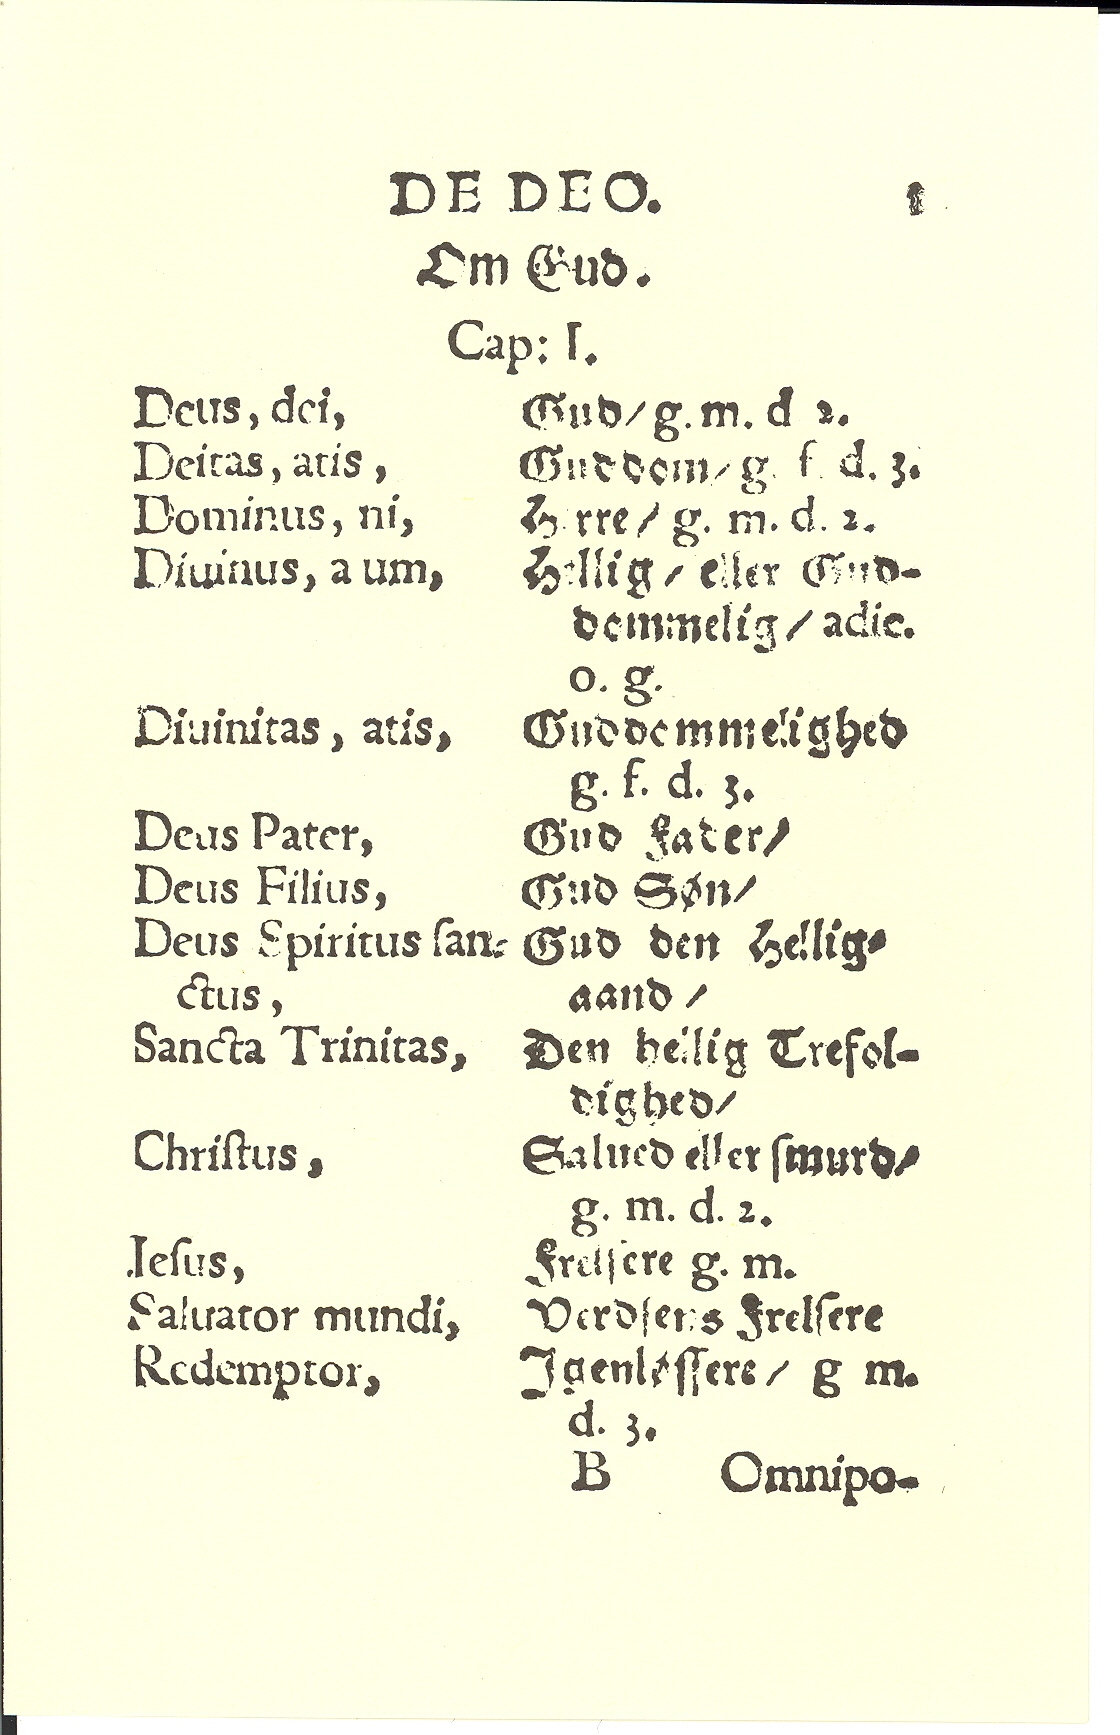 DE DEO. 1
Om Gud.
Cap: I.
Deus, dei, Gud/ g. m. d 2.
Deitas, atis, Guddom/ g. f. d. 3.
Dominus, ni, Herre/ g. m. d. 2.
Diuinus, a um, Hellig/ eller Gud-
dommelig/ adie.
o. g.
Diuinitas, atis, Guddommelighed
g. f. d. 3.
Deus Pater, Gud Fader/
Deus Filius, Gud Søn/
Deus Spiritus ſan- Gud den Hellig-
ctus, aand/
Sancta Trinitas, Den hellig Trefol-
dighed/
Chriſtus, Salued eller ſmurd/
g. m. d. 2.
Ieſus, Frelſere g. m.
Saluator mundi, Verdſens Frelſere
Redemptor, Igenløſſere/ g m.
d. 3.
B Omnipo-